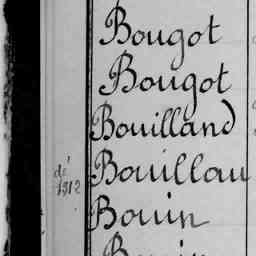 Bougot
Bougot
Bouilland
dé
1912
Bouillau
Bouin